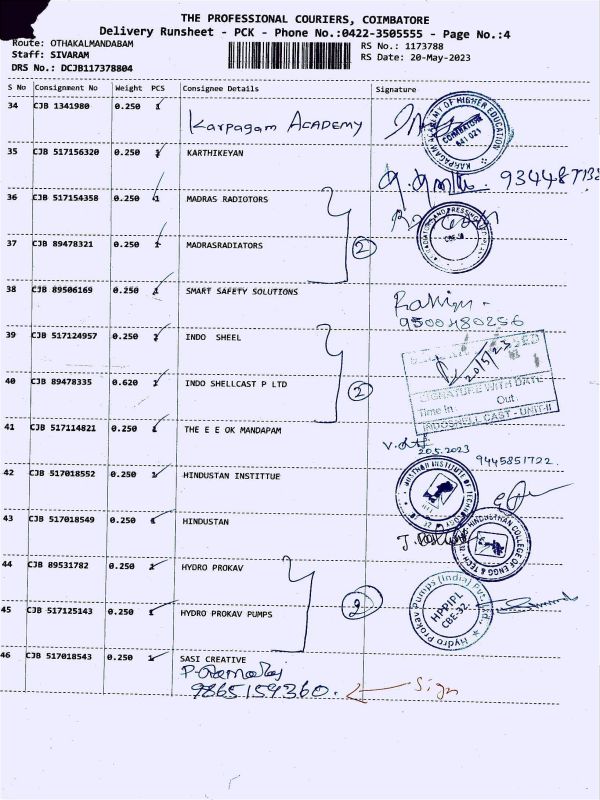 THE PROFESSIONAL COURIERS, COIMBATORE
Delivery Runsheet - PCK - Phone No.:0422-3505555 - Page No.:4
Route: OTHAKALMANDABAM RS No.: 1173788
Staff: SIVARAM RS Date: 20-May-2023
DRS No.: DCJB117378804
S No Consignment No Weight PCS Consignee Details Signature
34 CJB 1341980 0.250 1 Karpagam ACADEMY
KARPAGAM ACADEMY OF HIGHER EDUCATION
COIMBATORE
641 021
35 CJB 517156320 0.250 KARTHIKEYAN
36 CJB 517154358 0.250 1 MADRAS RADIOTORS
37 CJB 89478321 0.250 1 MADRASRADIATORS
2
38 CJB 89506169 0.250 SMART SAFETY SOLUTIONS
9500480256
39 CJB 517124957 0.250 INDO SHEEL
40 CJB 89478335 0.620 1 INDO SHELLCAST P LTD
2
20/5/23
SIGNATURE WITH DATE
Time In: Out.
INDOSHELL CAST - UNIT-II
41 CJB 517114821 0.250 THE E E OK MANDAPAM
20.5.2023
9445851722.
42 CJB 517018552 0.250 1 HINDUSTAN INSTITTUE
43 CJB 517018549 0.250 HINDUSTAN
44 CJB 89531782 0.250 HYDRO PROKAV
45 CJB 517125143 0.250 1 HYDRO PROKAV PUMPS
2
Hydro Prokav Pumps (India) Pvt. Ltd.
HPPIPL
CBE-32.
46 CJB 517018543 0.250 1 SASI CREATIVE
9865159360. Sign